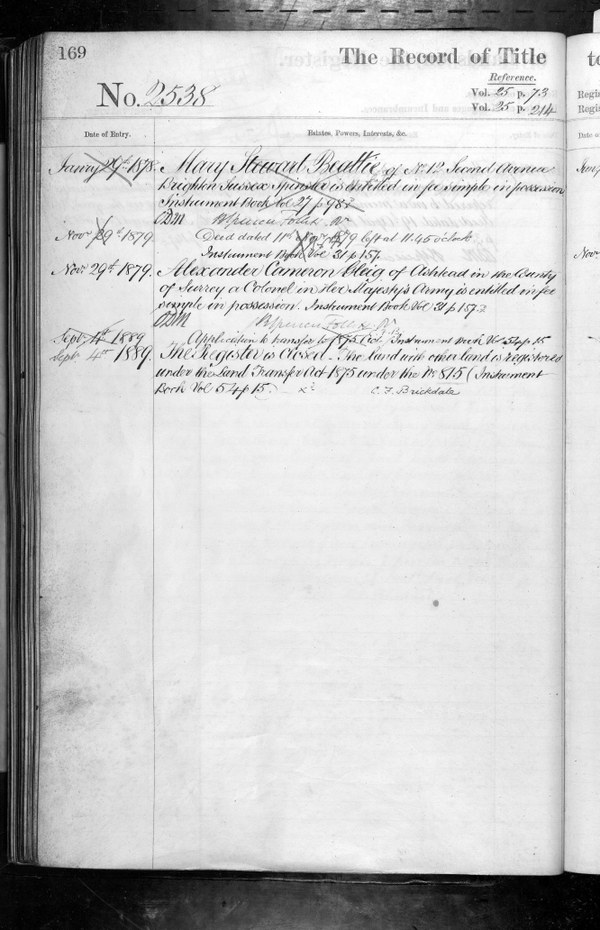 169
The Record of Title
No. 2538
Reference.
Vol. 25 p. 73
Vol. 25 p. 214
Date of Entry.
Estates, Powers, Interests, &c.
Janry 29th 1878. Mary Steward Beattie of No 12 Second Avenue
Brighton Sussex Spinster is entitled in fee simple in possession
Instrument Book Vol 27 p 985
Novr 29th 1879. Deed dated 11th 1879 left at 11.45 o'clock
Instrument Book Vol 31 p 157.
Novr 29th 1879. Alexander Cameron Gleig of Ashtead in the County
of Surrey a Colonel in Her Majesty's Army is entitled in fee
simple in possession. Instrument Book Vol 31 p 157
Sept. 4th 1889 Application to transfer to 1875 Act. Instrument Book Vol 54 p 15
Sept 4th 1889. The Register is Closed. The land with other land is registered
under the Land Transfer Act 1875 under the No 815 (Instrument
Book Vol 54 p 15.) C. F. Brickdale
to
Regis
Regis
Date o
Nov